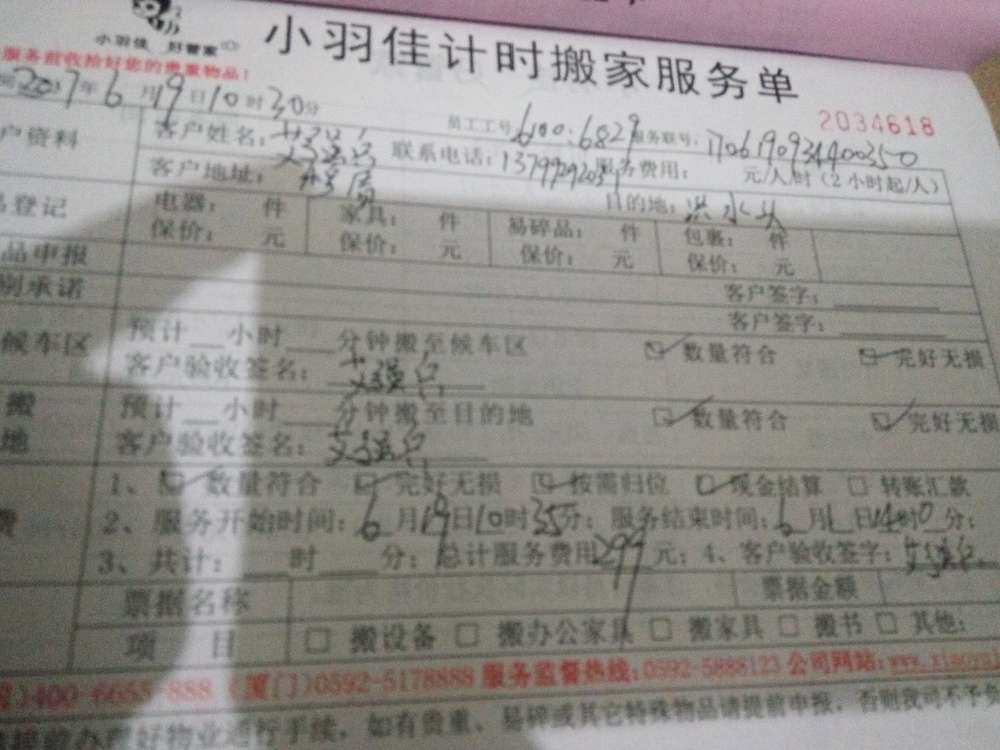 小羽佳 好管家
小羽佳计时搬家服务单
服务前收拾好您的贵重物品！
2017年6月19日10时30分
员工工号 6100:6829 服务联号：
2034618
户资料
客户姓名：
联系电话：
服务费用： 元/人/时（2小时起/人）
客户地址：
目的地：洪水头
品登记
电器： 件 家具： 件 易碎品： 件 包裹： 件
保价： 元 保价： 元 保价： 元 保价： 元
品申报
客户签字：
别承诺
客户签字：
候车区
预计 小时 分钟搬至候车区
数量符合 完好无损
客户验收签名：
搬
地
预计 小时 分钟搬至目的地
数量符合 完好无损
客户验收签名：
费
1、 数量符合 完好无损 按需归位 现金结算 转账汇款
2、服务开始时间：6月19日10时35分；服务结束时间：6月 日14时0分；
3、共计： 时 分；总计服务费用299元；4、客户验收签字：
票据名称 票据金额
项 目 搬设备 搬办公家具 搬家具 搬书 其他：
)400-6655-888 (厦门)0592-5178888 服务监督热线：0592-5888123 公司网站：
提前办理好物业进行手续，如有贵重、易碎或其它特殊物品请提前申报，否则我司不予